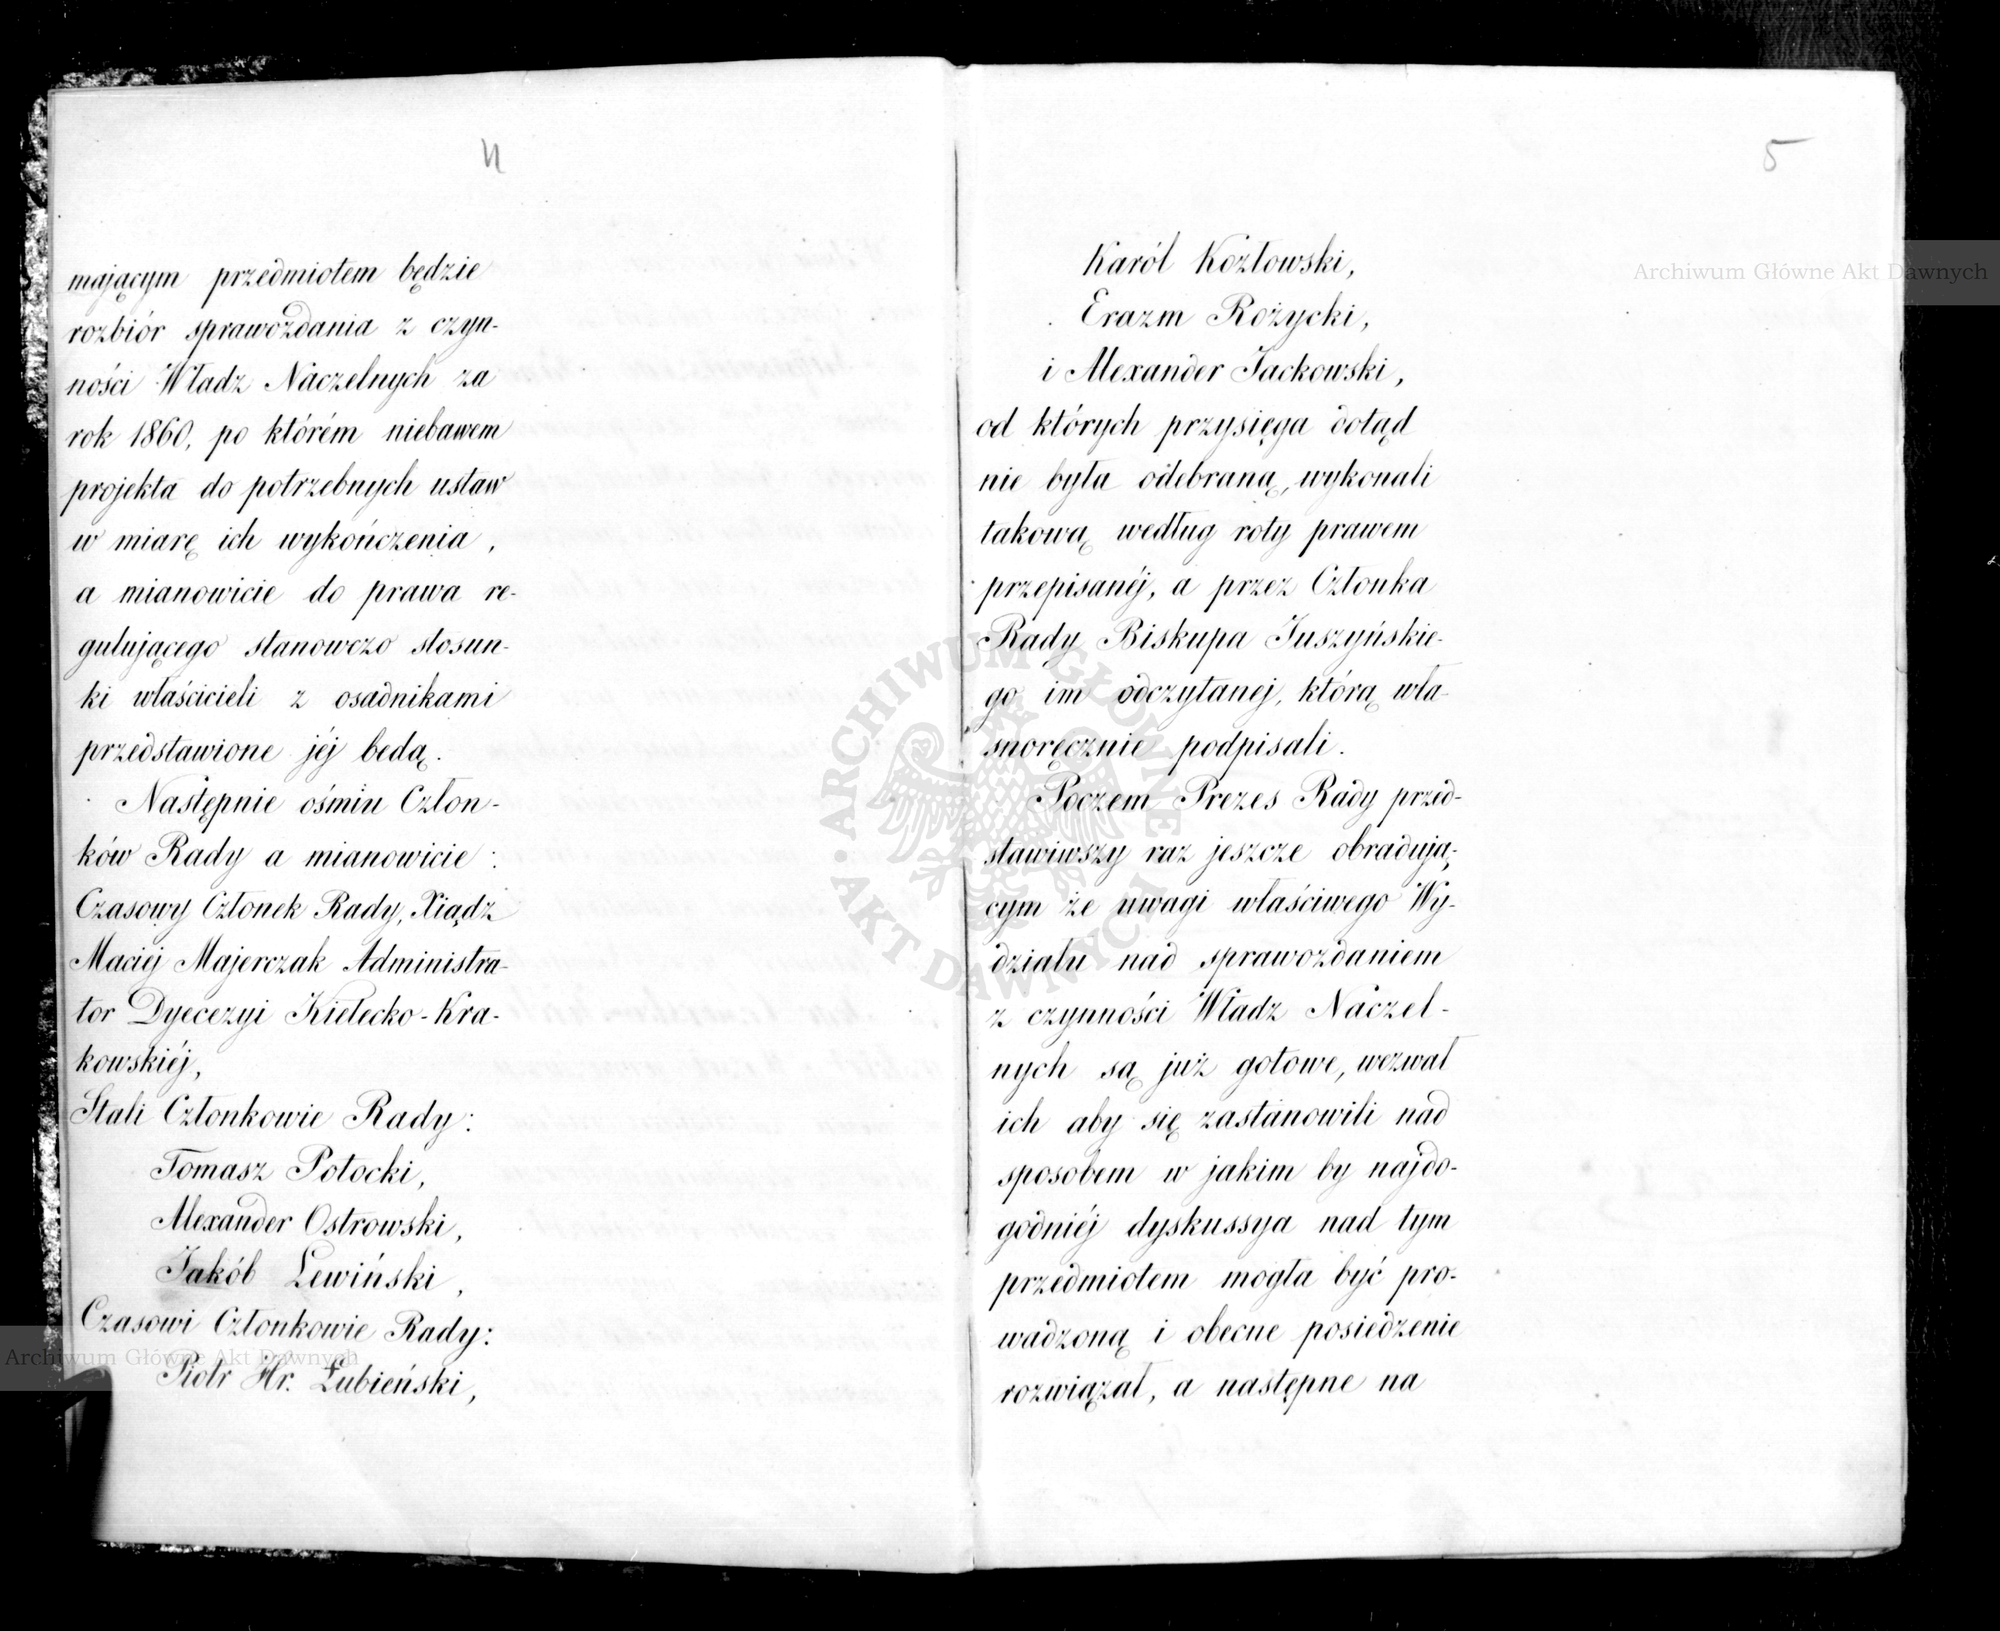 4
mającym przedmiotem będzie
rozbiór sprawozdania z czyn-
ności Władz Naczelnych za
rok 1860, po którém niebawem
projekta do potrzebnych ustaw
w miarę ich wykończenia,
a mianowicie do prawa re-
gulującego stanowczo stosun-
ki właścicieli z osadnikami
przedstawione jéj bedą.
Następnie ośmiu Człon-
ków Rady a mianowicie:
Czasowy Członek Rady, Xiądz
Maciej Majerczak Administra-
tor Dyecezyi Kielecko-Kra-
kowskiéj,
Stali Członkowie Rady:
Tomasz Potocki,
Alexander Ostrowski,
Jakób Lewiński,
Czasowi Członkowie Rady:
Piotr Hr. Łubieński,
5
Karól Kozłowski,
Erazm Rożycki,
i Alexander Jackowski,
od których przysięga dotąd
nie była odebraną, wykonali
takową według roty prawem
przepisanéj, a przez Członka
Rady Biskupa Juszyńskie-
go im odczytanej, którą wła-
snoręcznie podpisali.
Poczem Prezes Rady przed-
stawiwszy raz jeszcze obradują-
cym że uwagi właściwego Wy-
działu nad sprawozdaniem
z czynności Władz Naczel-
nych są już gotowe, wezwał
ich aby się zastanowili nad
sposobem w jakim by najdo-
godniéj dyskussya nad tym
przedmiotem mogła być pro-
wadzoną i obecne posiedzenie
rozwiązał, a następne na
Archiwum Główne Akt Dawnych
Archiwum Główne Akt Dawnych
ARCHIWUM GŁÓWNE AKT DAWNYCH